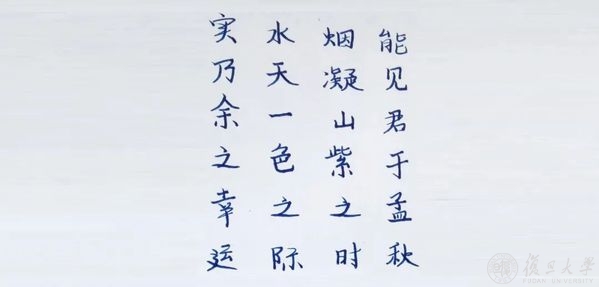 能见君于孟秋
烟凝山紫之时
水天一色之际
实乃余之幸运
復旦大學
FUDAN UNIVERSITY